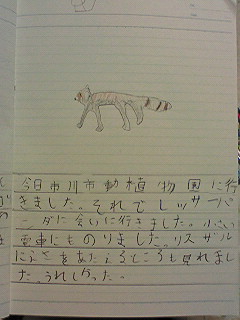 今日市川市動植物園に行
きました。それでレッサーパ
ンダに会いに行きました。小さい
電車にものりました。リスザル
にえさをあたえるところも見れまし
た。うれしかった。